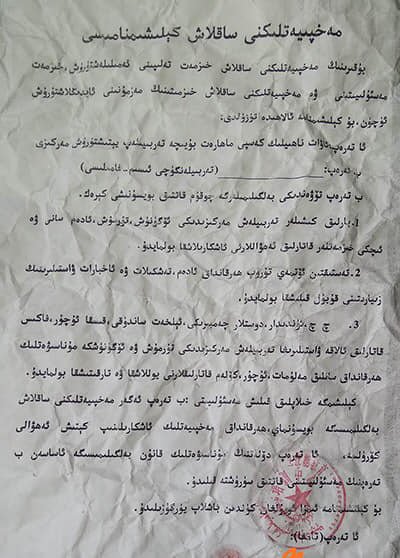 مەخپىيەتلىكنى ساقلاش كېلىشىمنامىسى
يۇقىرىنىڭ مەخپىيەتلىكنى ساقلاش خىزمەت تەلىپىنى ئەمىلىلەشتۈرۈش،خىزمەت
مەسئۇلىيىتىنى ۋە مەخپىيەتلىكنى ساقلاش خىزمىتىنىڭ مەزمۇنىنى ئايدىڭلاشتۇرۇش
ئۈچۈن،بۇ كېلىشىمنامە ئالاھىدە تۈزۈلدى:
ئا تەرەپ: ناھىيىلىك كەسپىي ماھارەت بويىچە تەربىيەلەپ يېتىشتۈرۈش مەركىزى
ب تەرەپ: (تەربىيەلەنگۈچى ئىسىم-فامىلىسى)
ب تەرەپ تۆۋەندىكى بەلگىلىمىلەرگە چوقۇم قاتتىق بويسۇنىشى كېرەك.
1.بارلىق كىشىلەر تەربىيلەش مەركىزىدىكى ئۆگۈنۈش،تۇرمۇش،ئادەم سانى ۋە
ئىچكى خىزمەتلەر قاتارلىق ئەھۋاللارنى ئاشكارىلاشقا بولمايدۇ.
2.تەستىقتىن ئۆتمەي تۇرۇپ ھەرقانداق ئادەم،تەشكىلات ۋە ئاخبارات ۋاستىلىرىنىڭ
زىيارىتىنى قوبۇل قىلىشقا بولمايدۇ.
3. چ چ،ئۈندىدار،دوستلار چەمبىرىكى،ئېلخەت ساندۇقى،قىسقا ئۇچۇر،فاكىس
قاتارلىق ئالاقە ۋاستىلىرىغا تەربىيلەش مەركىزىدىكى تۇرمۇش ۋە ئۆگۈنۈشكە مۇناسىۋەتلىك
ھەرقانداق سانلىق مەلۇمات،ئۇچۇر،كۆلەم قاتارلىقلارنى يوللاشقا ۋە تارقىتىشقا بولمايدۇ.
كېلىشىمگە خىلاپلىق قىلىش مەسئۇلىيىتى :ب تەرەپ ئەگەر مەخپىيەتلىكنى ساقلاش
بەلگىلىمىسىگە بويسۇنماي،ھەرقانداق مەخپىيەتلىك ئاشكارىلىنىپ كېتىش ئەھۋالى
كۆرۈلسە، ئا تەرەپ دۆلەتنىڭ مۇناسىۋەتلىك قانۇن بەلگىلىمىسىگە ئاساسەن ب
تەرەپنىڭ مەسئۇلىيىتىنى قاتتىق سۈرۈشتە قىلىدۇ.
بۇ كېلىشىمنامە ئىمزا قويۇلغان كۈندىن باشلاپ يۈرگۈزۈلىدۇ.
ئا تەرەپ(تامغا):